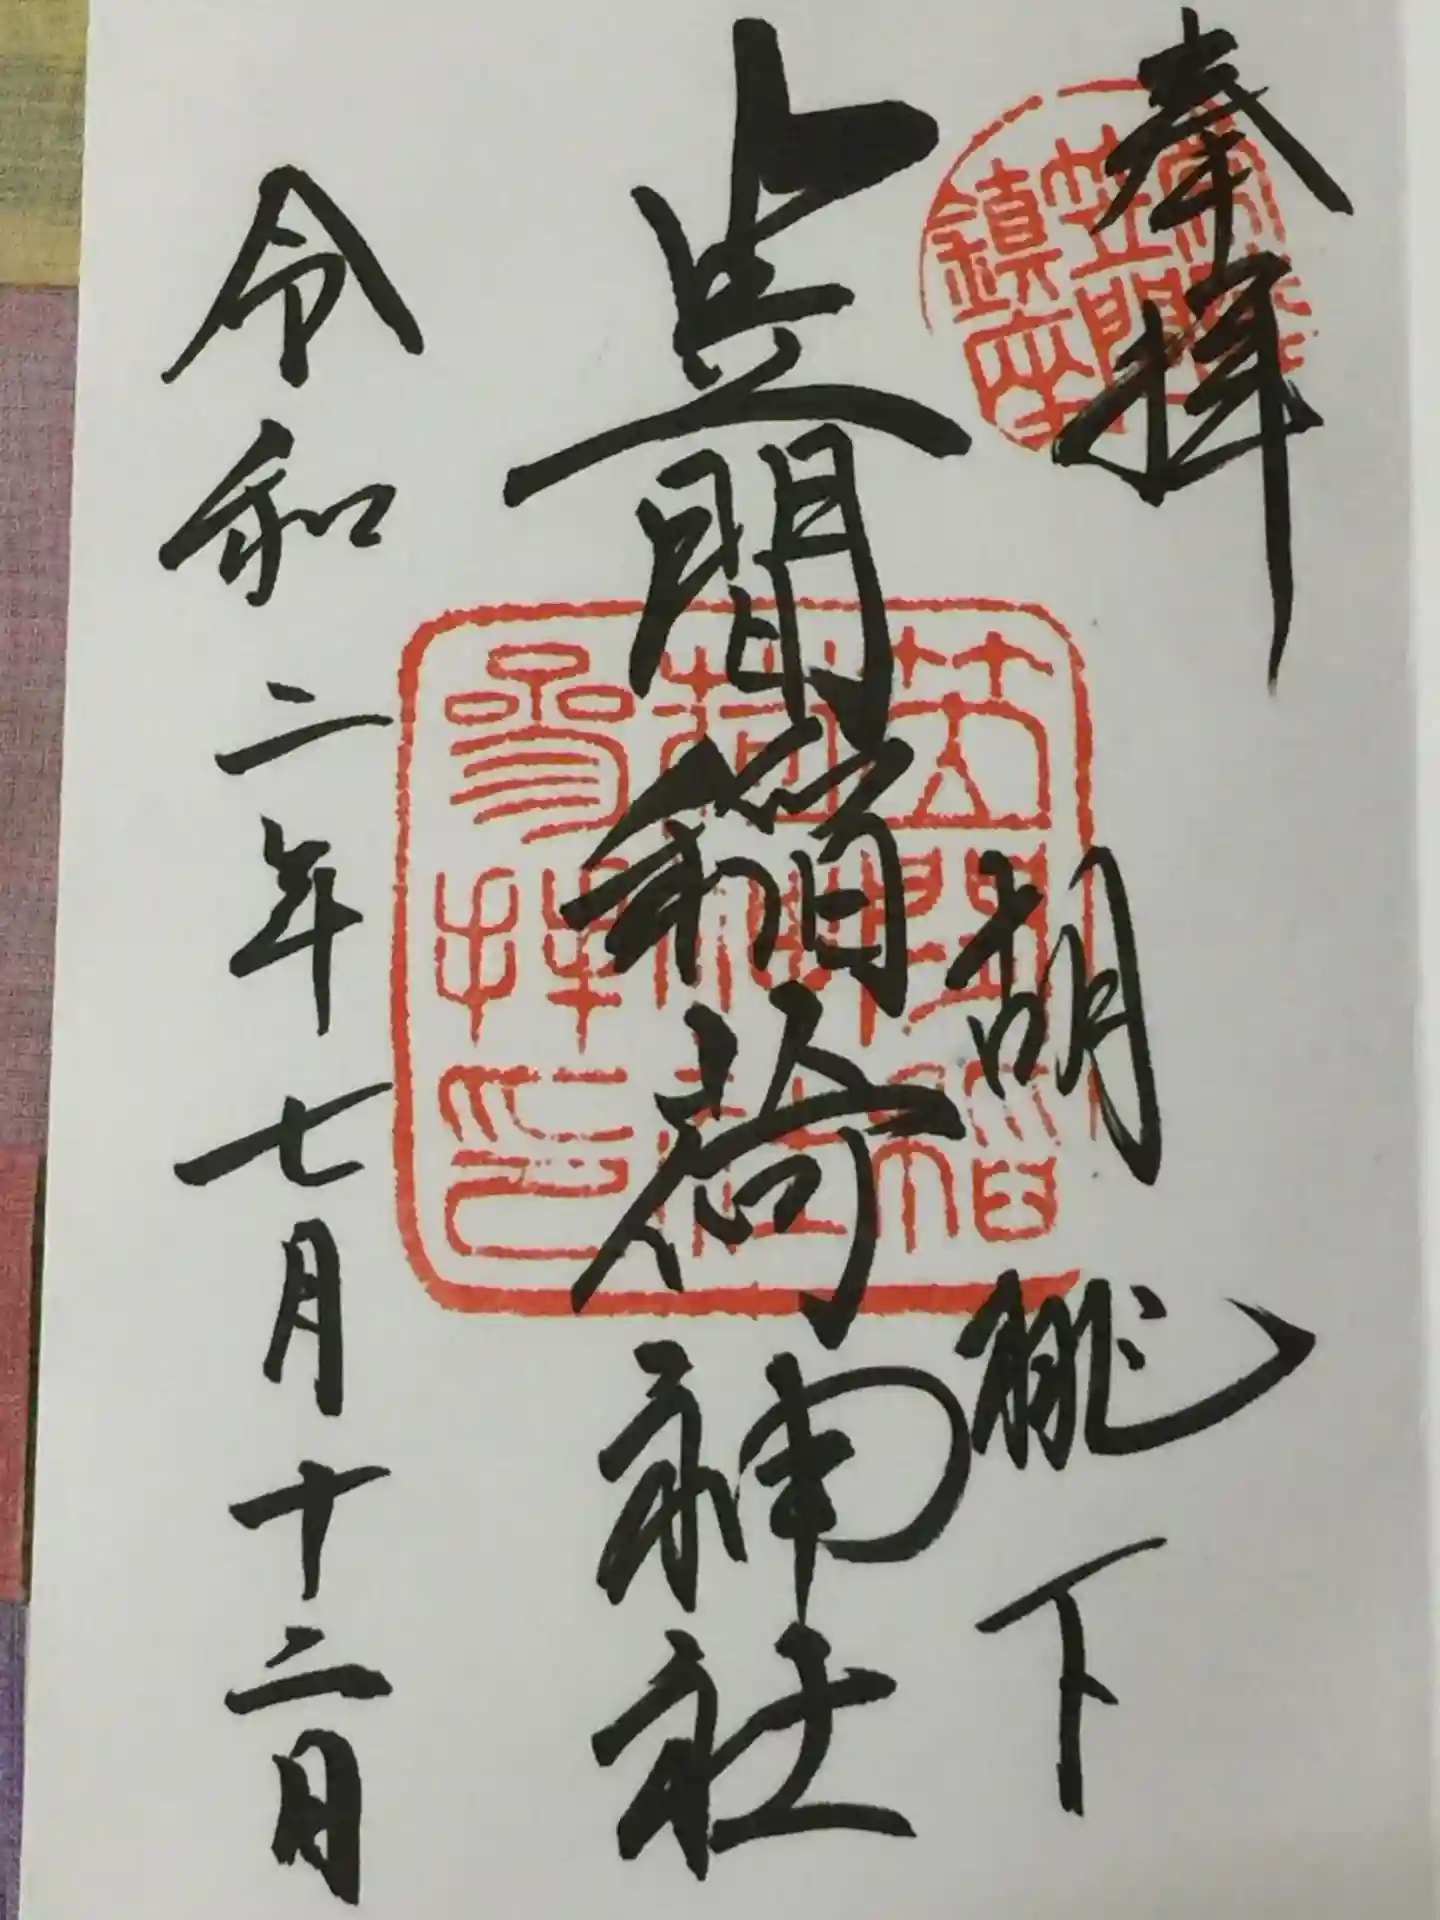 奉拝
常陸
笠間
鎮座
胡桃下
笠間稲荷神社
笠間稲
荷神社
參拜印
令和二年七月十二日